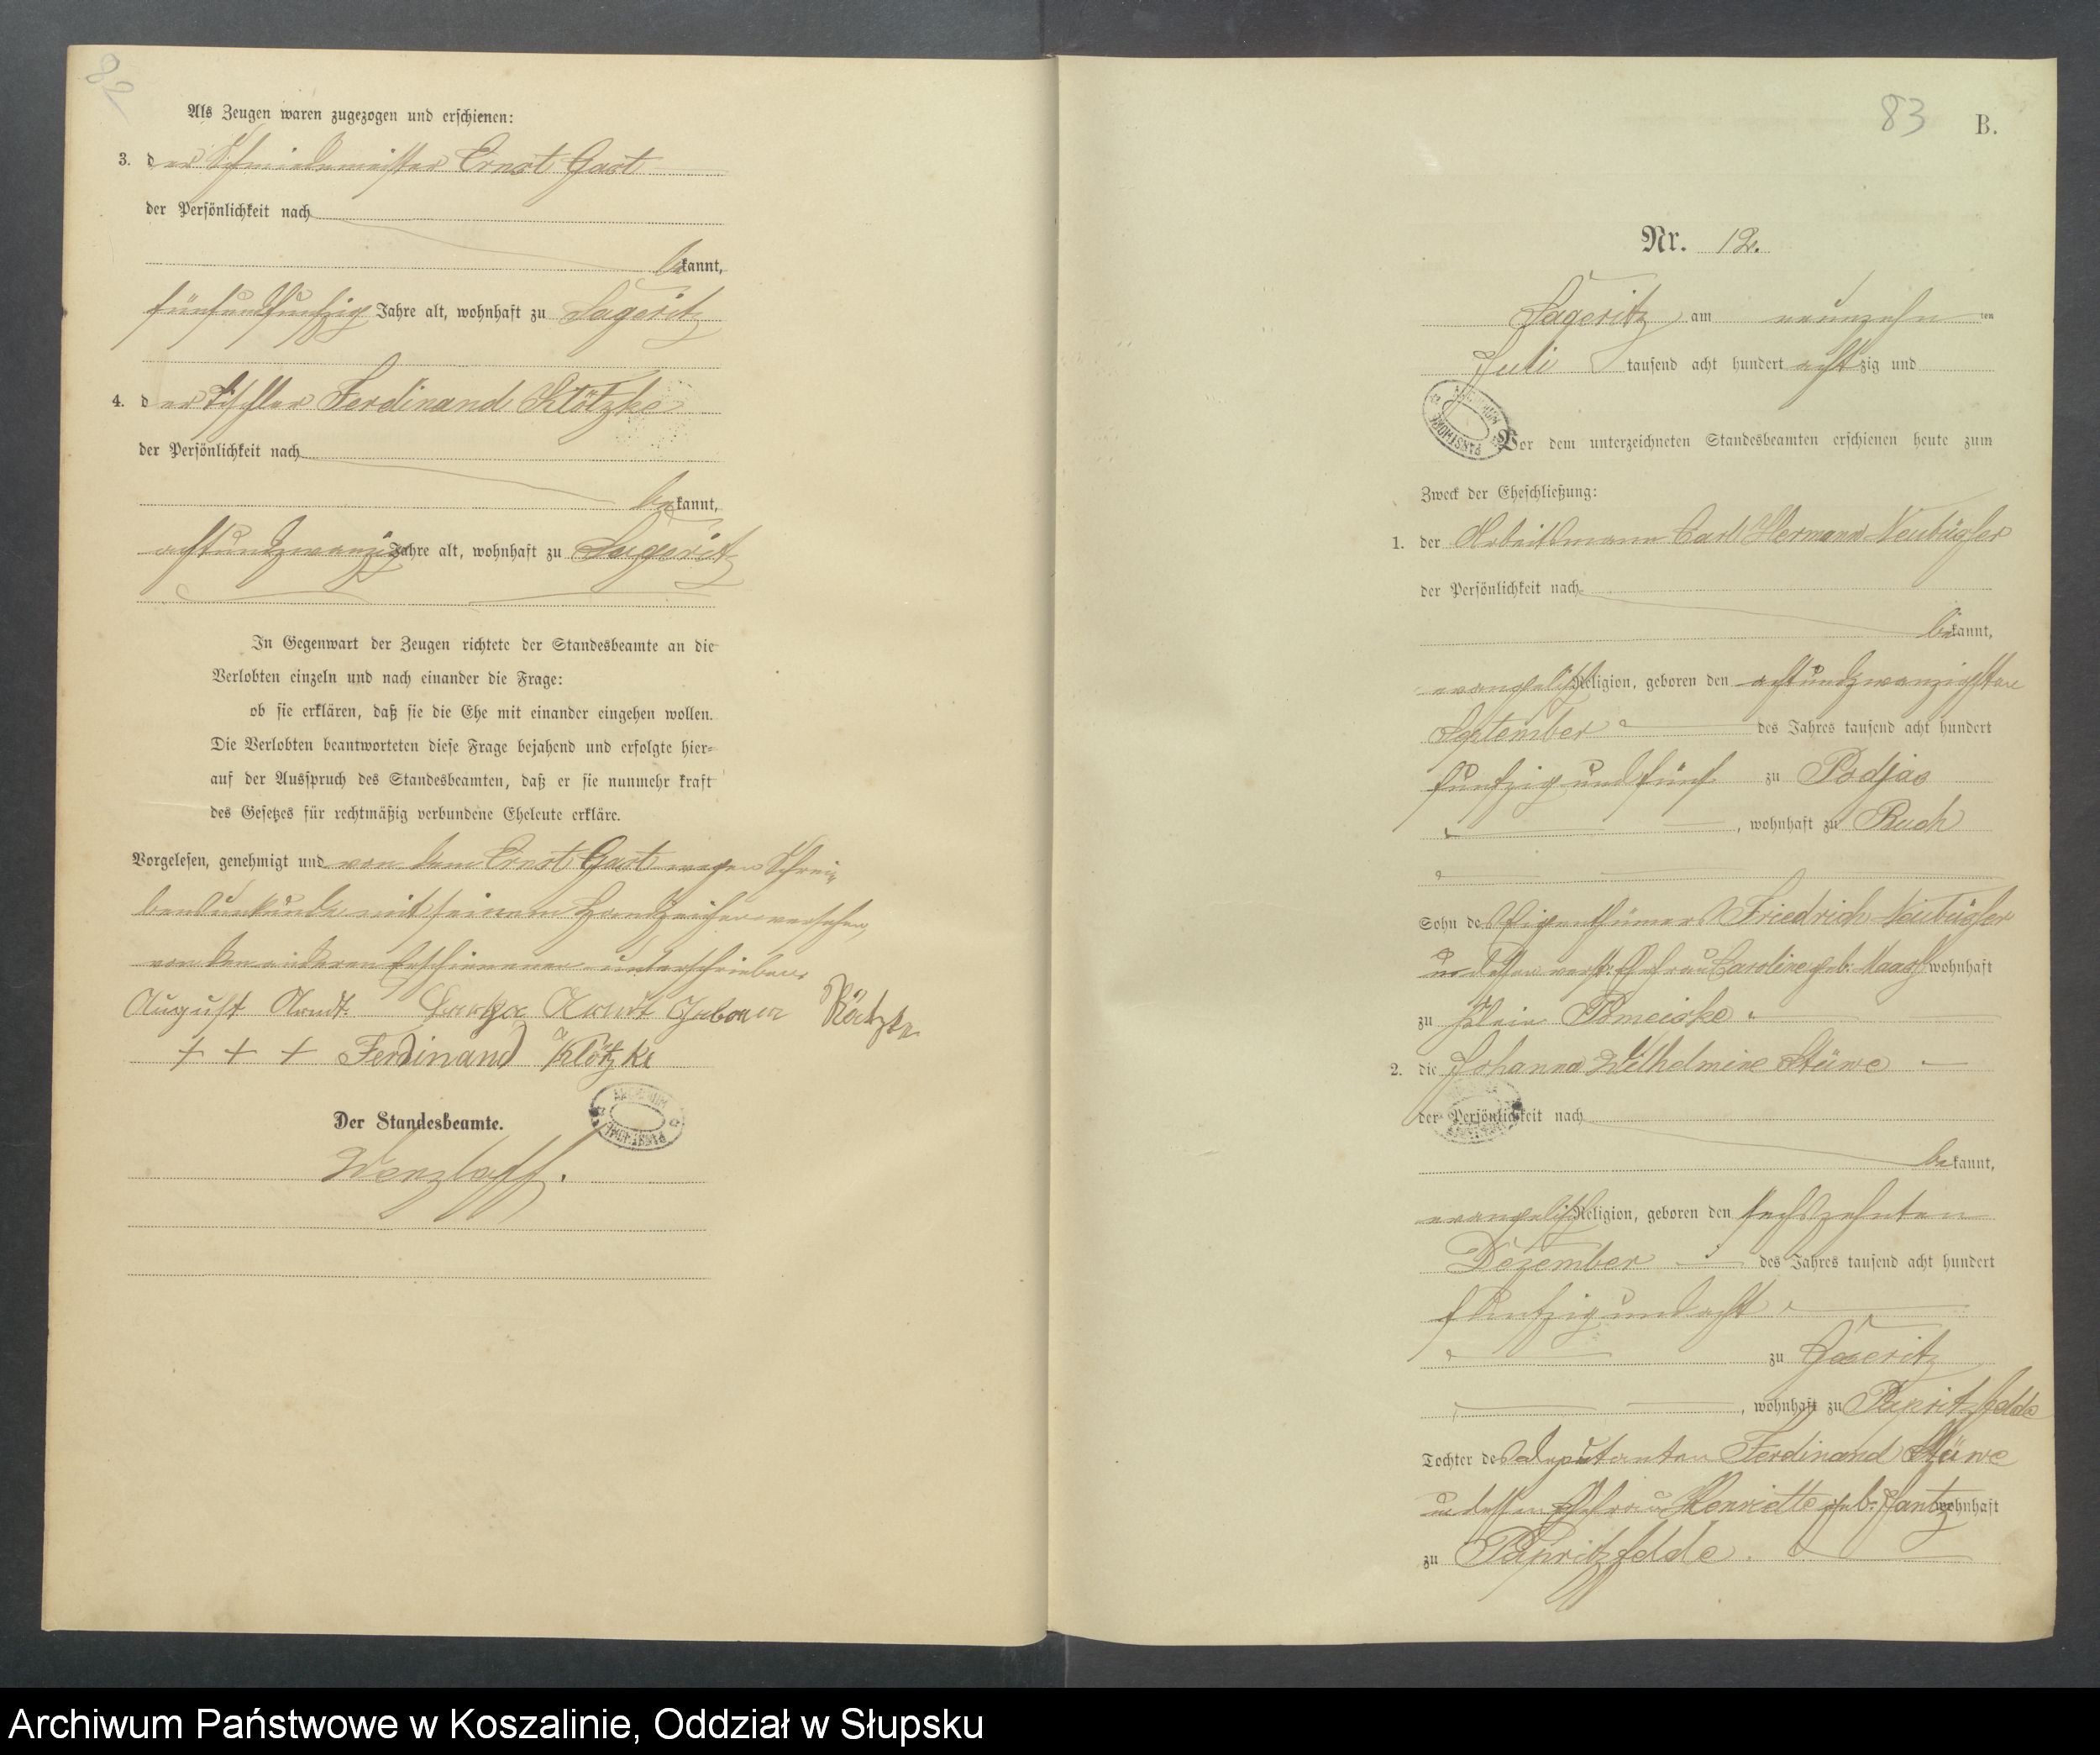 82
Als Zeugen waren zugezogen und erschienen:
3. der Schmiedemeister Ernst Gast
der Persönlichkeit nach
bekannt,
fünfundfunfzig Jahre alt, wohnhaft zu Sageritz
4. der Tischler Ferdinand Klötzke
der Persönlichkeit nach
bekannt,
achtundzwanzig Jahre alt, wohnhaft zu Sageritz
In Gegenwart der Zeugen richtete der Standesbeamte an die
Verlobten einzeln und nach einander die Frage:
ob sie erklären, daß sie die Ehe mit einander eingehen wollen.
Die Verlobten beantworteten diese Frage bejahend und erfolgte hier=
auf der Ausspruch des Standesbeamten, daß er sie nunmehr kraft
des Gesetzes für rechtmäßig verbundene Eheleute erkläre.
Vorgelesen, genehmigt und von dem Ernst Gast wegen Schrei-
bensunkunde mit seinem Handzeichen versehen,
von den anderen Erschienenen unterschrieben.
August Arndt. Arndt geborne
+ + + Ferdinand Klötzke
Der Standesbeamte.
Wenzlaff.
83 B.
Nr. 12.
Sageritz am neunzehn ten
Juli tausend acht hundert achtzig und
Vor dem unterzeichneten Standesbeamten erschienen heute zum
Zweck der Eheschließung:
1. der Arbeitsmann Carl Hermann Neubügler
der Persönlichkeit nach
bekannt,
evangelisch Religion, geboren den achtundzwanzigsten
September des Jahres tausend acht hundert
funfzig und fünf zu Podjas
, wohnhaft zu Ruch
Sohn des Eigenthümers Friedrich Neubügler
u. dessen verst. Ehefrau Caroline geb. Maass wohnhaft
zu Klein Pomeiske
2. die Johanna Wilhelmine Stüwe
der Persönlichkeit nach
bekannt,
evangelisch Religion, geboren den sechszehnten
Dezember des Jahres tausend acht hundert
funfzig und acht
zu Gaeeritz
, wohnhaft zu Papritzfelde
Tochter des Deputanten Ferdinand Stüwe
u. dessen Ehefrau Henriette geb. Jantz wohnhaft
zu Papritzfelde.
Archiwum Państwowe w Koszalinie, Oddział w Słupsku